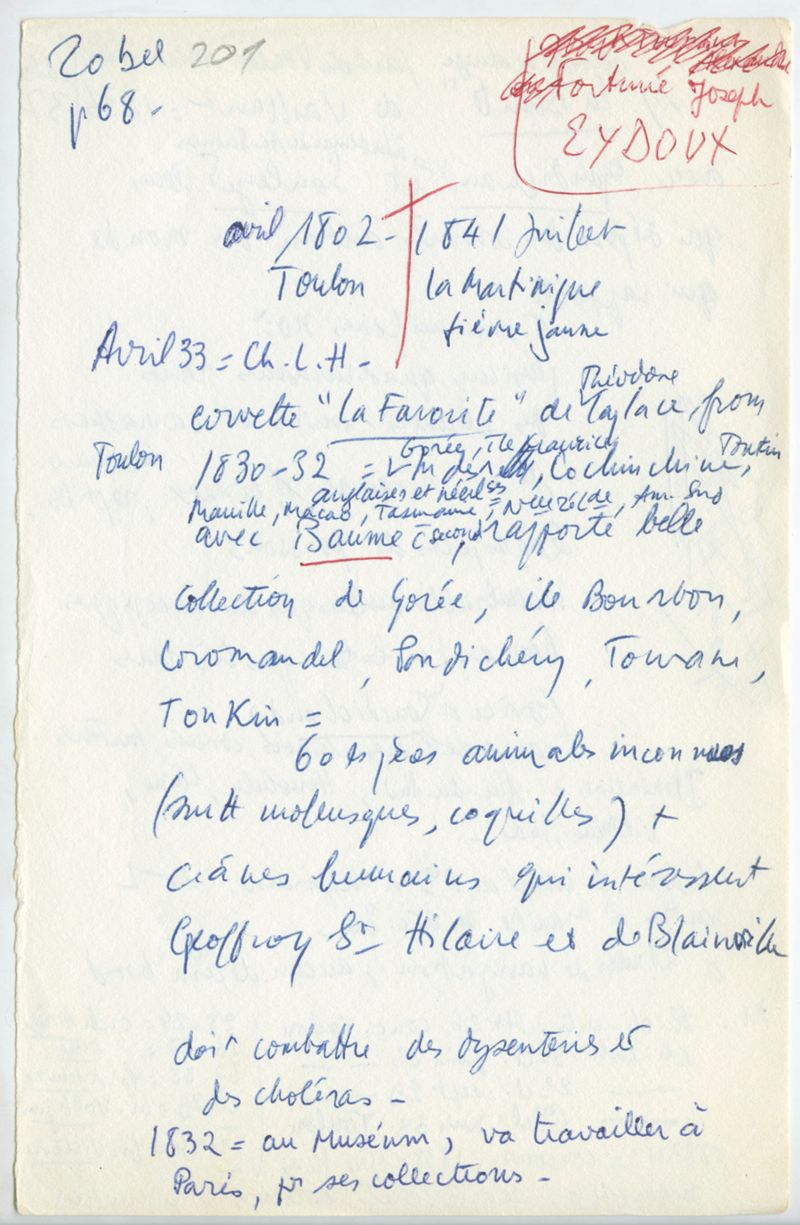 Zobel 201
p68 -
Fortuné Joseph
EYDOUX
avril 1802 - † 1841 Juillet
Toulon la Martinique
fièvre jaune
Avril 33 = Ch. L. H -
Théodore
corvette "La Favorite" de Laplace, from
Gorée, île Maurice, Tonkin
Toulon 1830-32 = , Cochinchine,
anglaises et néerl ses
Manille, Macao, Tasmanie = Nlle Zélde, Am. Sud
avec Baume second rapporte belle
Collection de Gorée, île Bourbon,
Coromandel, Pondichéry, Tourane,
TonKin =
60 espèces animales inconnues
(surtt mollusques, coquilles) +
crânes humains qui intéressent
Geoffroy St Hilaire et de Blainville
doit combattre des dysenteries et
des choléras -
1832 = au Muséum, va travailler à
Paris, pr ses collections -